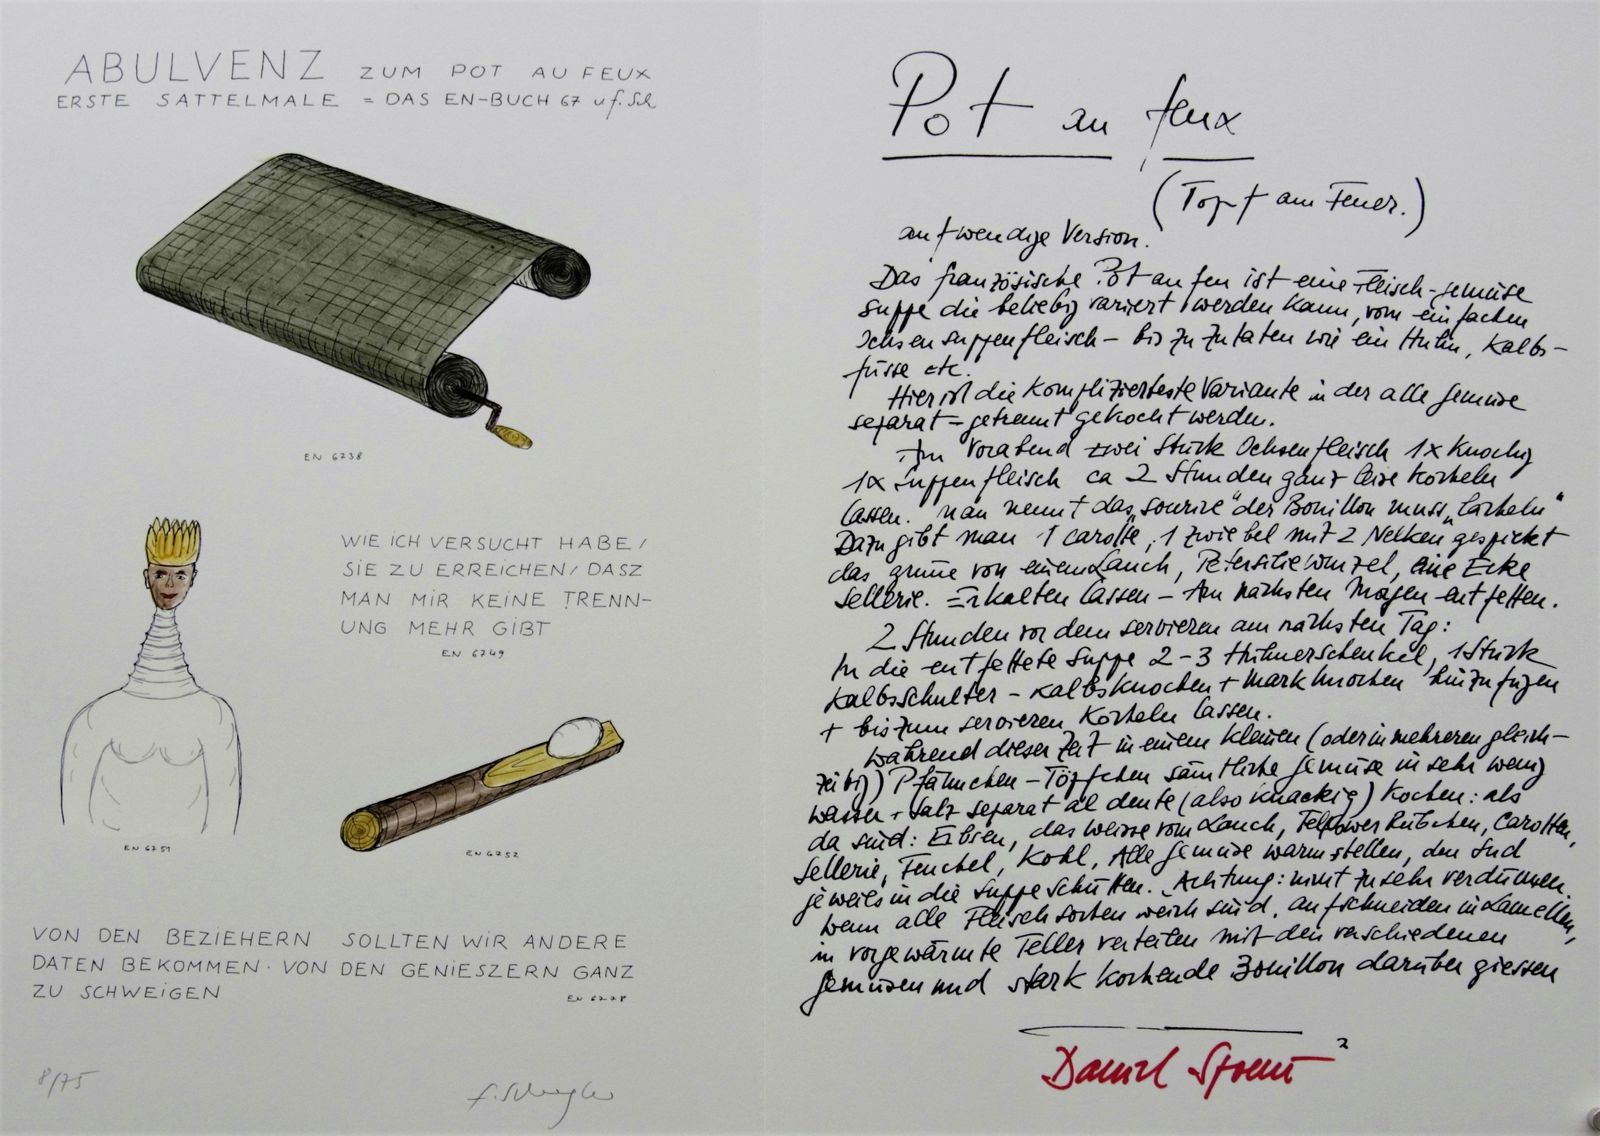 ABULVENZ ZUM POT AU FEUX
ERSTE SATTELMALE = DAS EN-BUCH 67 u f. Sch
EN 6738
WIE ICH VERSUCHT HABE/
SIE ZU ERREICHEN/DASZ
MAN MIR KEINE TRENN-
UNG MEHR GIBT
EN 6749
EN 6751
EN 6752
VON DEN BEZIEHERN SOLLTEN WIR ANDERE
DATEN BEKOMMEN · VON DEN GENIESZERN GANZ
ZU SCHWEIGEN
8/75
Pot au feux
(Topf am Feuer.)
aufwendige Version.
Das französische Pot au feu ist eine Fleisch-gemüse
suppe die beliebig variiert werden kann, vom einfachen
Ochsensuppenfleisch – bis zu Zutaten wie ein Huhn, Kalbs-
füsse etc.
Hier ist die komplizierteste Variante in der alle Gemüse
separat = getrennt gekocht werden.
Am Vorabend zwei Stück Ochsenfleisch 1x knochig
1x Suppenfleisch ca 2 Stunden ganz leise köcheln
lassen. Man nennt das „sourire" der Bouillon muss „lächeln"
Dazu gibt man 1 Carotte, 1 Zwiebel mit 2 Nelken gespickt
das grüne von einem Lauch, Petersiliewurzel, eine Ecke
Sellerie. Erkalten lassen – Am nächsten Morgen entfetten.
2 Stunden vor dem servieren am nächsten Tag:
In die entfettete Suppe 2-3 Hühnerschenkel, 1 Stück
Kalbsschulter – Kalbsknochen + Markknochen hinzufügen
+ bis zum servieren köcheln lassen.
Während dieser Zeit in einem kleinen (oder in mehreren gleich-
zeitig) Pfännchen – Töpfchen sämtliche Gemüse in sehr wenig
Wasser + Salz separat al dente (also knackig) kochen: als
da sind: Erbsen, das weisse vom Lauch, Teltower Rübchen, Carotten,
Sellerie, Fenchel, Kohl. Alle Gemüse warmstellen, den Sud
jeweils in die Suppe schütten. Achtung: nicht zu sehr verdünnen.
Wenn alle Fleischsorten weich sind, aufschneiden in Lamellen,
in vorgewärmte Teller verteilen mit den verschiedenen
Gemüsen und stark kochende Bouillon darüber giessen
Daniel Spoerri